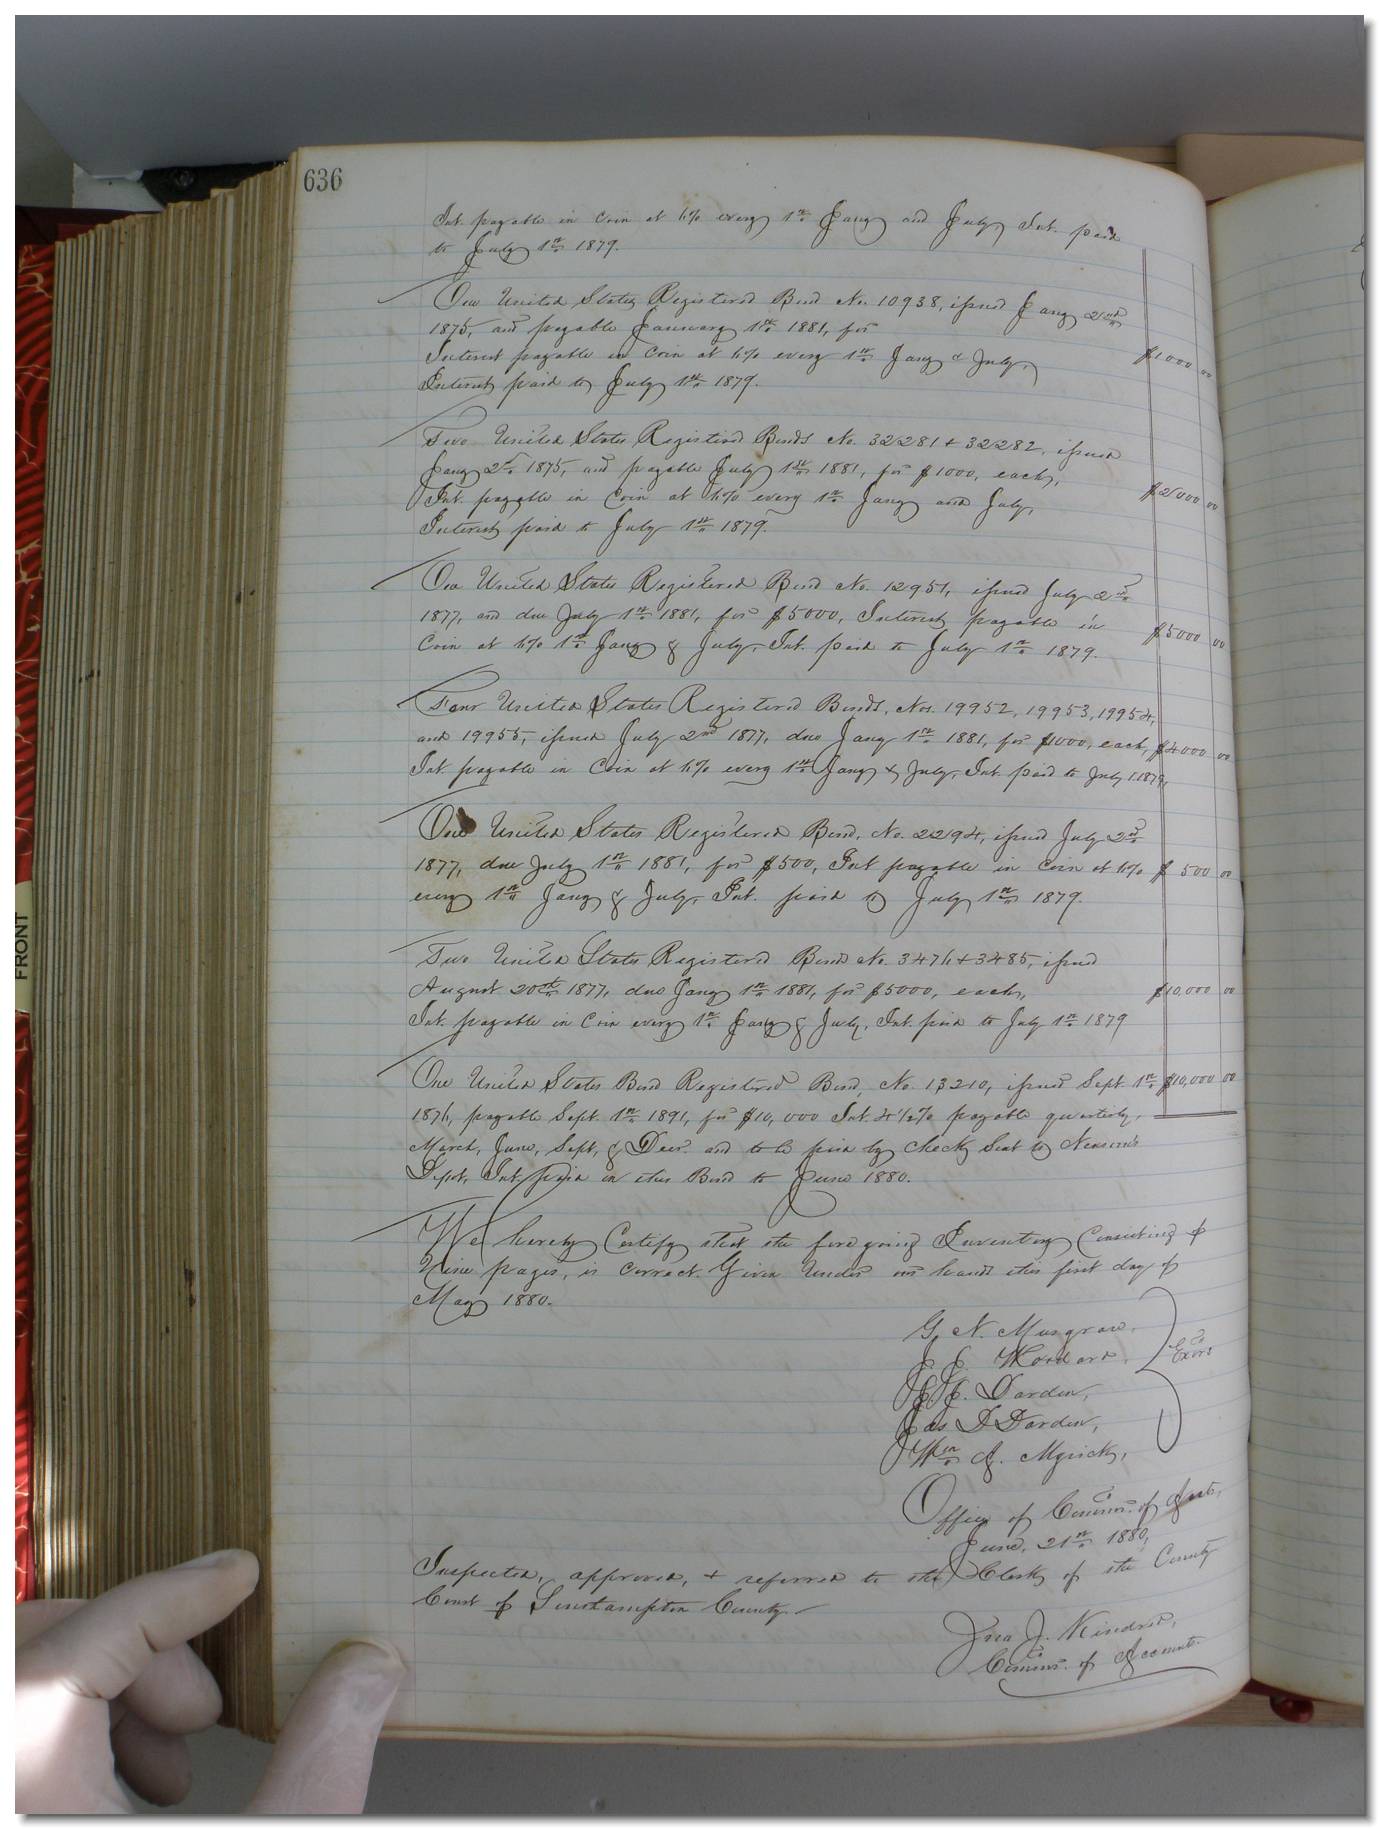 636
Int. payable in Coin at 6% every 1st Jany and July Int. paid
to July 1st 1879.
One United States Registered Bond No. 10938, issued Jany 2nd
1875, and payable January 1st 1881, for
Interest payable in Coin at 6% every 1st Jany & July, $1000 00
Interest paid to July 1st 1879.
Two United States Registered Bonds No. 32281 & 32282, issued
Jany 2d 1875, and payable July 1st 1881, for $1000, each,
Int. payable in Coin at 6% every 1st Jany and July, $2000 00
Interest paid to July 1st 1879.
One United States Registered Bond No. 12951, issued July 2nd
1877, and due July 1st 1881, for $5000, Interest payable in
Coin at 6% 1st Jany & July, Int. paid to July 1st 1879. $5000 00
Four United States Registered Bonds, Nos. 19952, 19953, 19954,
and 19955, issued July 2nd 1877, due Jany 1st 1881, for $1000, each, $4000 00
Int. payable in Coin at 6% every 1st Jany & July, Int. paid to July 1. 1879,
One United States Registered Bond, No. 2294, issued July 2nd
1877, due July 1st 1881, for $500, Int payable in Coin at 6% $500 00
every 1st Jany & July, Int. paid to July 1st 1879.
Two United States Registered Bonds No. 3476 & 3485, issued
August 20th 1877, due Jany 1st 1881, for $5000, each, $10,000 00
Int. payable in Coin every 1st Jany & July, Int. paid to July 1st 1879
One United States Bond Registered Bond, No. 13210, issued Sept. 1st $10,000 00
1876, payable Sept. 1st 1891, for $10,000 Int. 4½% payable quarterly,
March, June, Sept, & Decr. and to be paid by check sent to Newsom's
Depot, Int. paid on this Bond to June 1880.
We hereby Certify that the foregoing Inventory Consisting of
Nine pages, is correct. Given under our hands this first day of
May 1880.
G. N. Musgrave,
J. J. Woodard,
J. J. Darden, Exors
Jas D Darden,
Wm A. Myrick,
Office of Commr. of Accts,
June, 21st 1880,
Inspected, approved, & referred to the Clerk of the County
Court of Southampton County.
Jno J. Kindred,
Commr. of Accounts.
FRONT